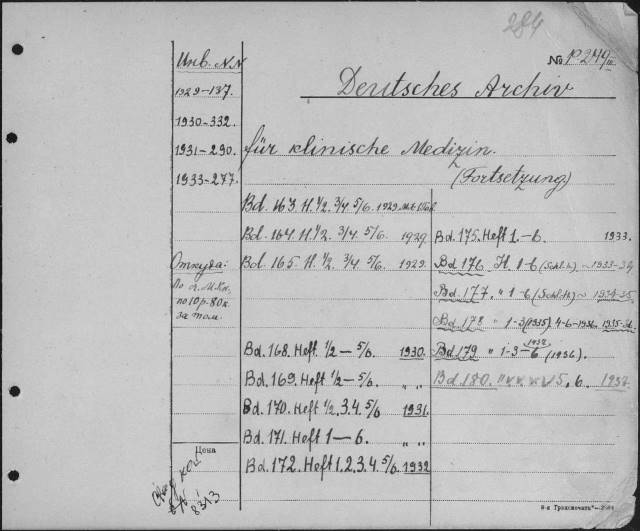 284
№ P 249
Deutsches Archiv
für klinische Medizin.
(Fortsetzung)
Инв. N.N
1929-137.
1930-332.
1931-290.
1933-277.
Откуда:
по 10 р. 80 к.
за том.
Цена
8313
Bd. 163 H. 1/2. 3/4 5/6. 1929
Bd. 164 H. 1/2. 3/4. 5/6. 1929.
Bd. 165 H. 1/2. 3/4. 5/6. 1929.
Bd. 168. Heft. 1/2 — 5/6. 1930.
Bd. 169. Heft 1/2 — 5/6. " "
Bd. 170. Heft 1/2, 3.4. 5/6 1931.
Bd. 171. Heft 1 — 6. " "
Bd. 172. Heft 1. 2. 3. 4. 5/6 1932
Bd. 175. Heft 1. — 6. 1933.
Bd. 176. H. 1-6 1933-34
Bd. 177. " 1-6 1934-35
Bd. 178 " 1-3 (1935). 4-6-1936. 1935-36.
1937
Bd. 179 " 1-3-6 (1936).
Bd. 180. 5, 6. 1937